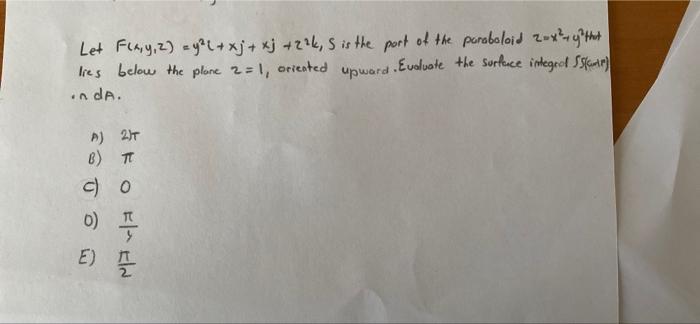 Let F(x,y,z) = y²i + xj + xj + z²k, S is the part of the paraboloid z=x²+y² that
lies below the plane z=1, oriented upward. Evaluate the surface integral ∫∫(curlF)
.n dA.
A) 2π
B) π
C) 0
D) π/4
E) π/2